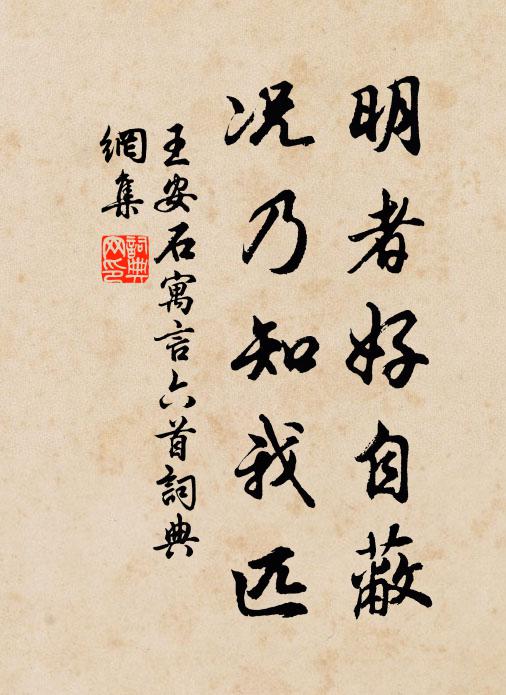 明者好自蔽
况乃知我匹
王安石寓言六首詞典
網集
詞典網印